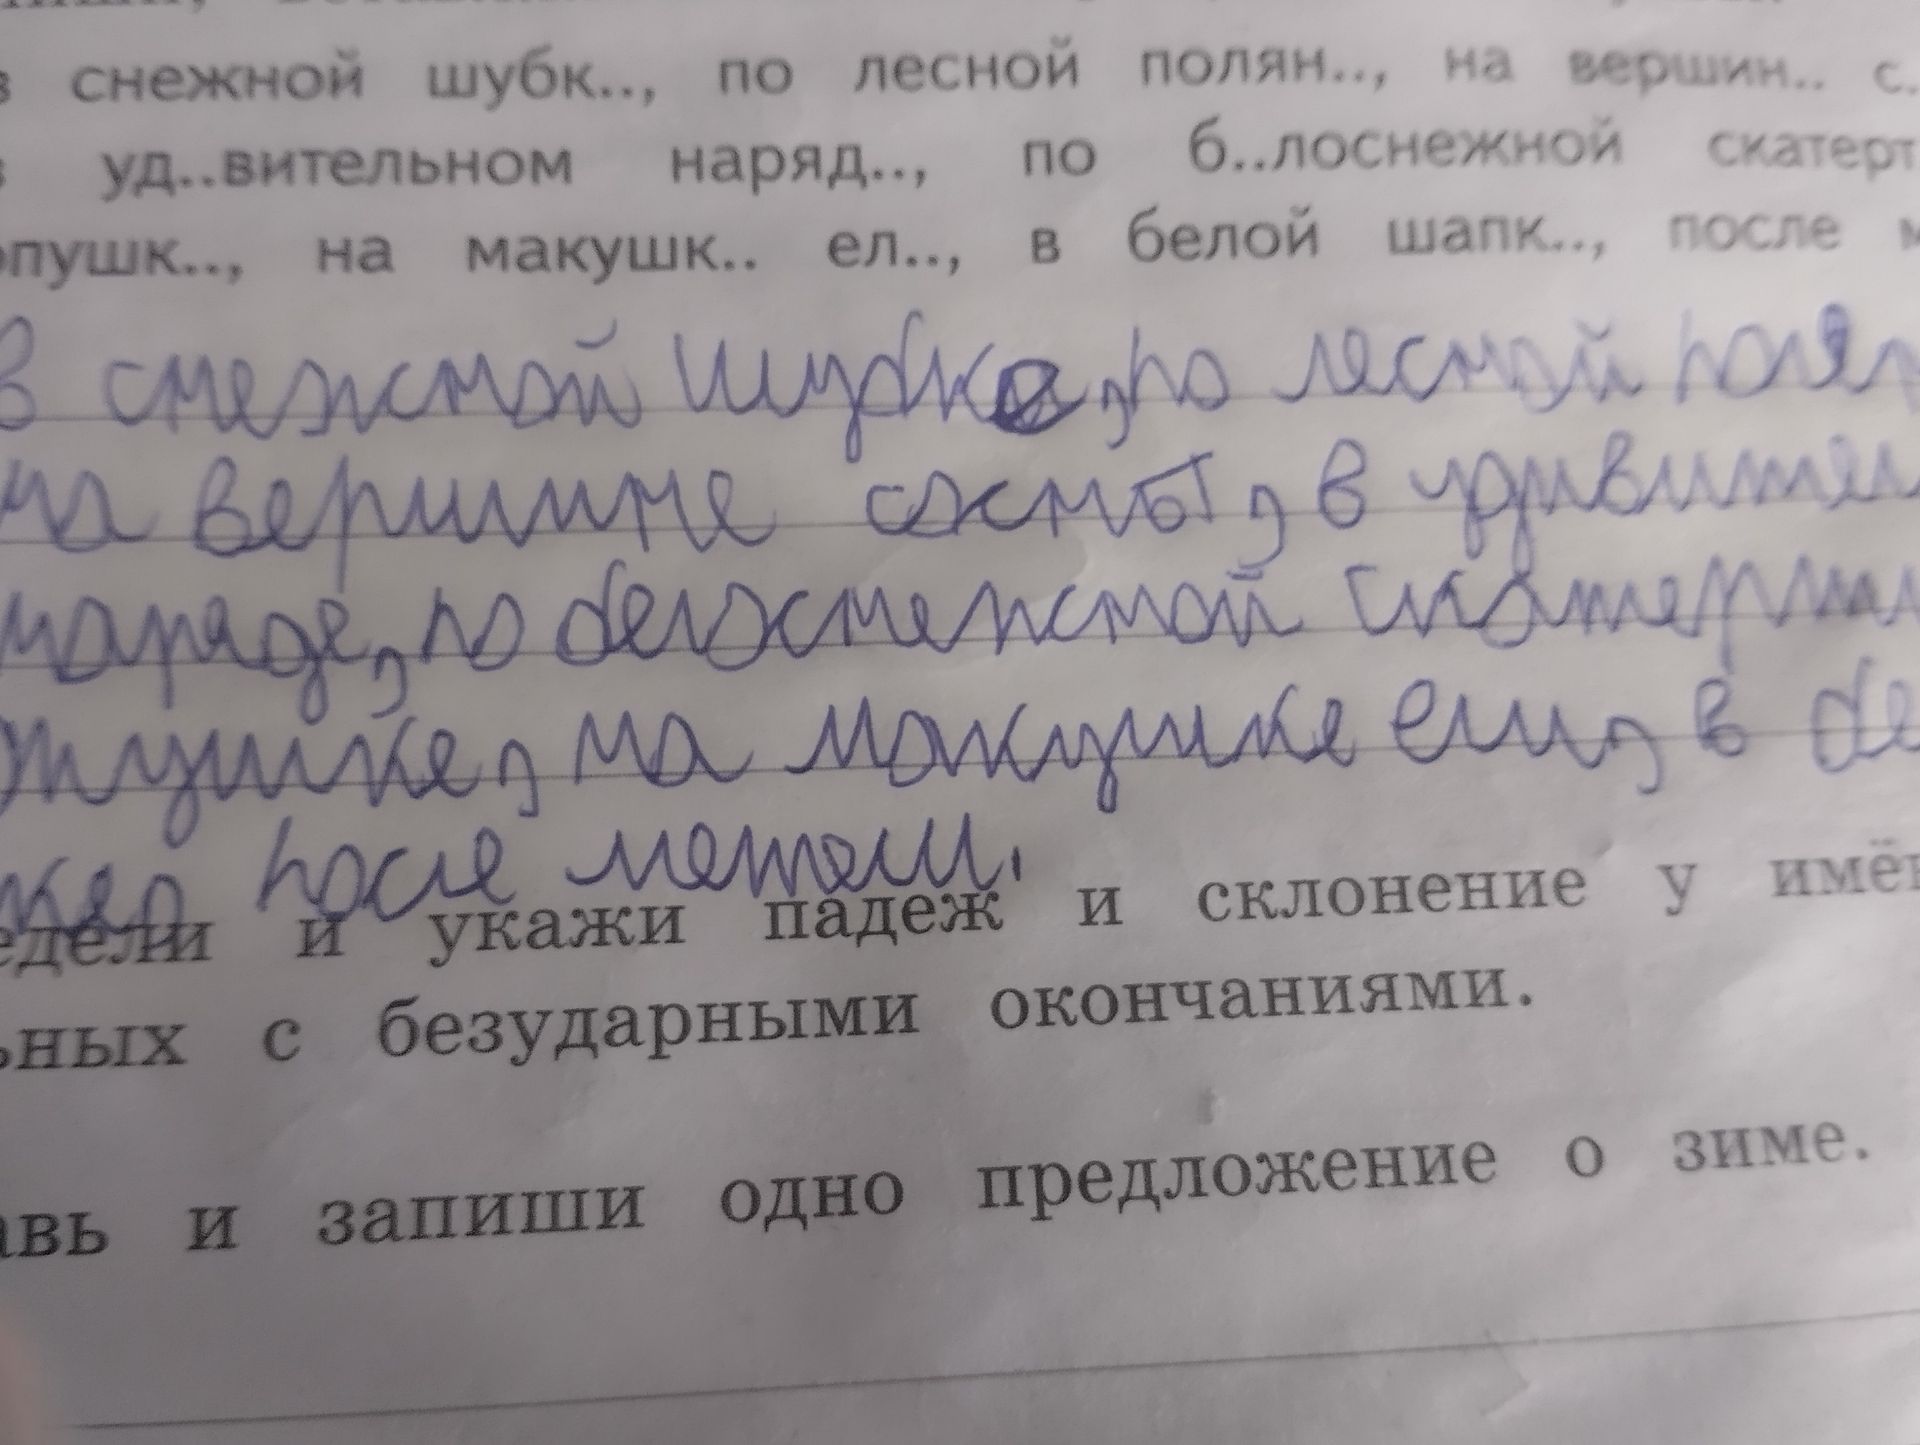 снежной шубк.., по лесной полян.., на вершин.. с..
уд..вительном наряд.., по б..лоснежной скатерт
опушк.., на макушк.. ел.., в белой шапк.., после м
в снежной шубке, по лесной полян
на вершине сосны, в удивител
наряде, по белоснежной скатерти
опушке, на макушке ели, в бе
после метели.
едели и укажи падеж и склонение у имён
ьных с безударными окончаниями.
авь и запиши одно предложение о зиме.